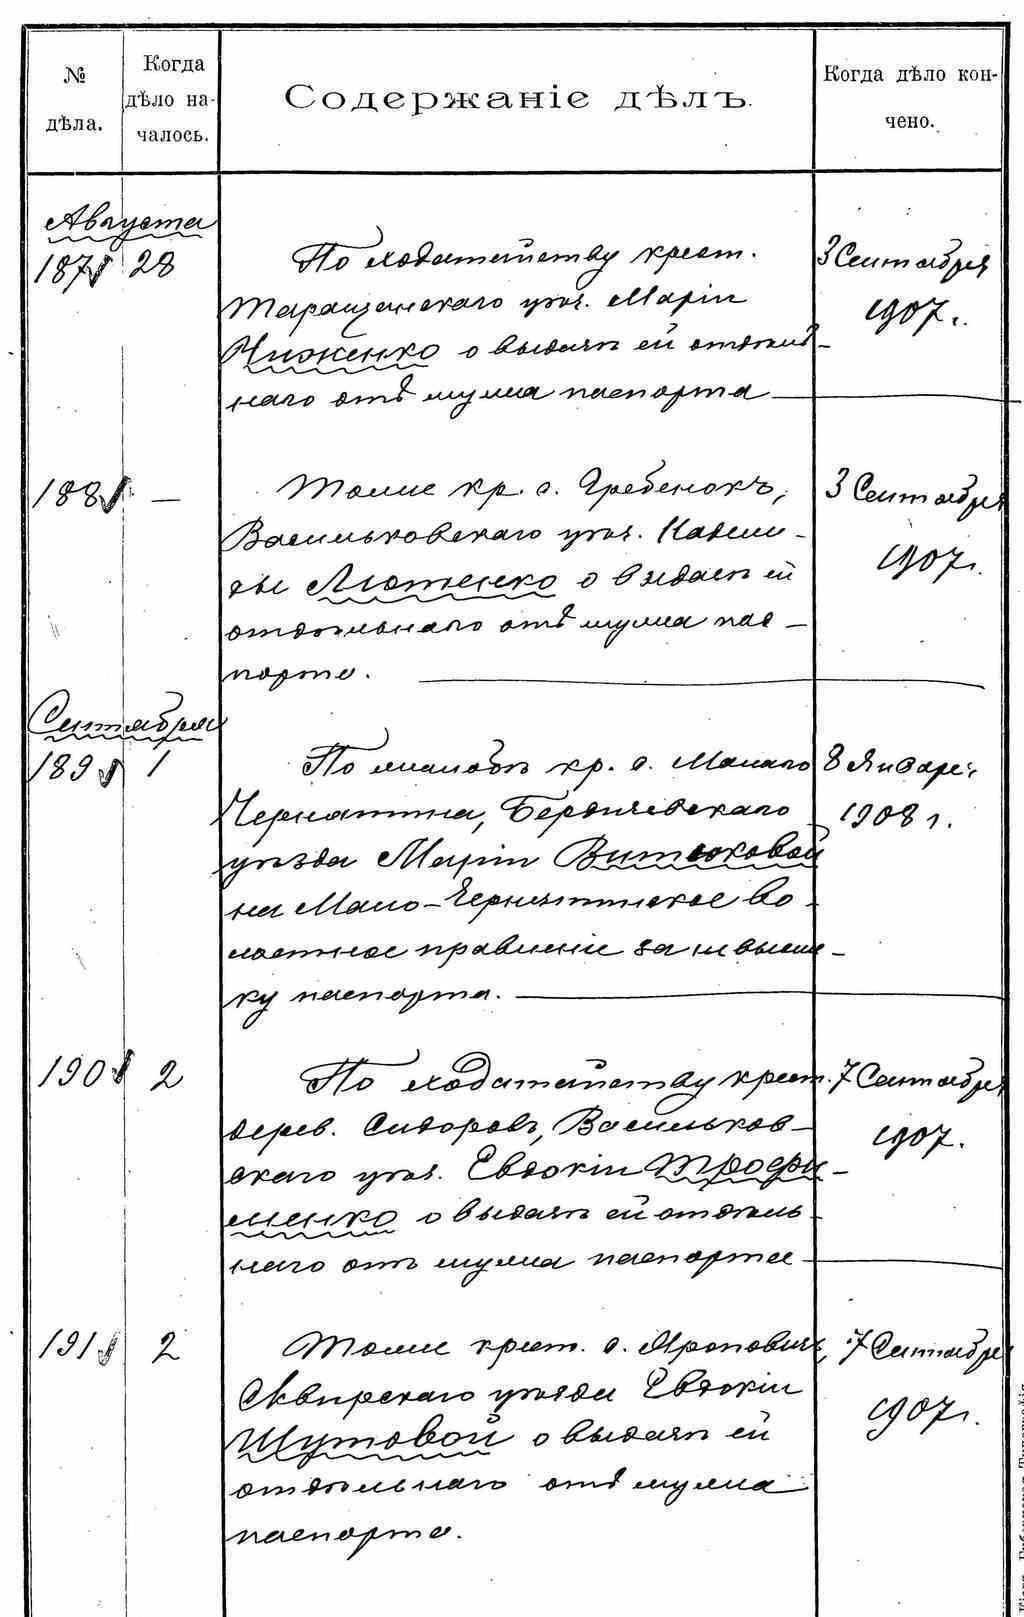 № дѣла.
Когда дѣло на-
чалось.
Содержаніе дѣлъ.
Когда дѣло кон-
чено.
Августа
187 28 По ходатайству крест. 3 Сентября
Таращанскаго уѣз. Маріи 1907 г.
Чиженко о выдачѣ ей отдѣль-
наго отъ мужа паспорта
188 — Тоже кр. с. Гребенокъ, 3 Сентября
Васильковскаго уѣз. 1907 г.
Лютенко о выдачѣ ей
отдѣльнаго отъ мужа пас-
порта.
Сентября
189 1 По жалобѣ кр. с. Малаго 8 Января
Чернятина, Бердичевскаго 1908 г.
уѣзда Маріи Витюковой
на Мало-Чернятинское во-
лостное правленіе за невысыл-
ку паспорта.
190 2 По ходатайству крест. 7 Сентября
дерев. Сидоровъ, Васильков- 1907 г.
скаго уѣз. Евдокіи Трофи-
менко о выдачѣ ей отдѣль-
наго отъ мужа паспорта
191 2 Тоже крест. с. Яроповичъ, 7 Сентября
Сквирскаго уѣзда Евдокіи 1907 г.
Шутовой о выдачѣ ей
отдѣльнаго отъ мужа
паспорта.